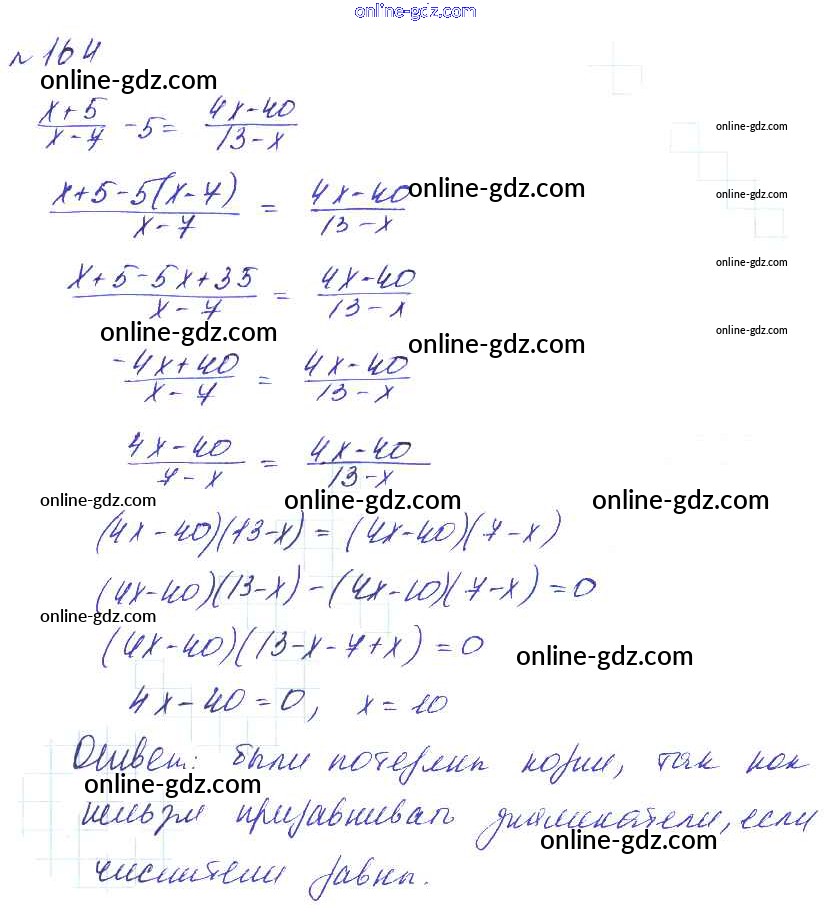 online-gdz.com
№ 164
online-gdz.com
(x+5)/(x-7) - 5 = (4x-40)/(13-x)
online-gdz.com
(x+5-5(x-7))/(x-7) = (4x-40)/(13-x)
online-gdz.com
online-gdz.com
(x+5-5x+35)/(x-7) = (4x-40)/(13-x)
online-gdz.com
online-gdz.com
online-gdz.com
online-gdz.com
(-4x+40)/(x-7) = (4x-40)/(13-x)
(4x-40)/(7-x) = (4x-40)/(13-x)
online-gdz.com
online-gdz.com
online-gdz.com
(4x-40)(13-x) = (4x-40)(7-x)
(4x-40)(13-x) - (4x-10)(7-x) = 0
online-gdz.com
(4x-40)(13-x-7+x) = 0
online-gdz.com
4x-40=0, x=10
Ответ: были потеряны корни, так как
online-gdz.com
нельзя приравнивать знаменатели, если
online-gdz.com
числители равны.